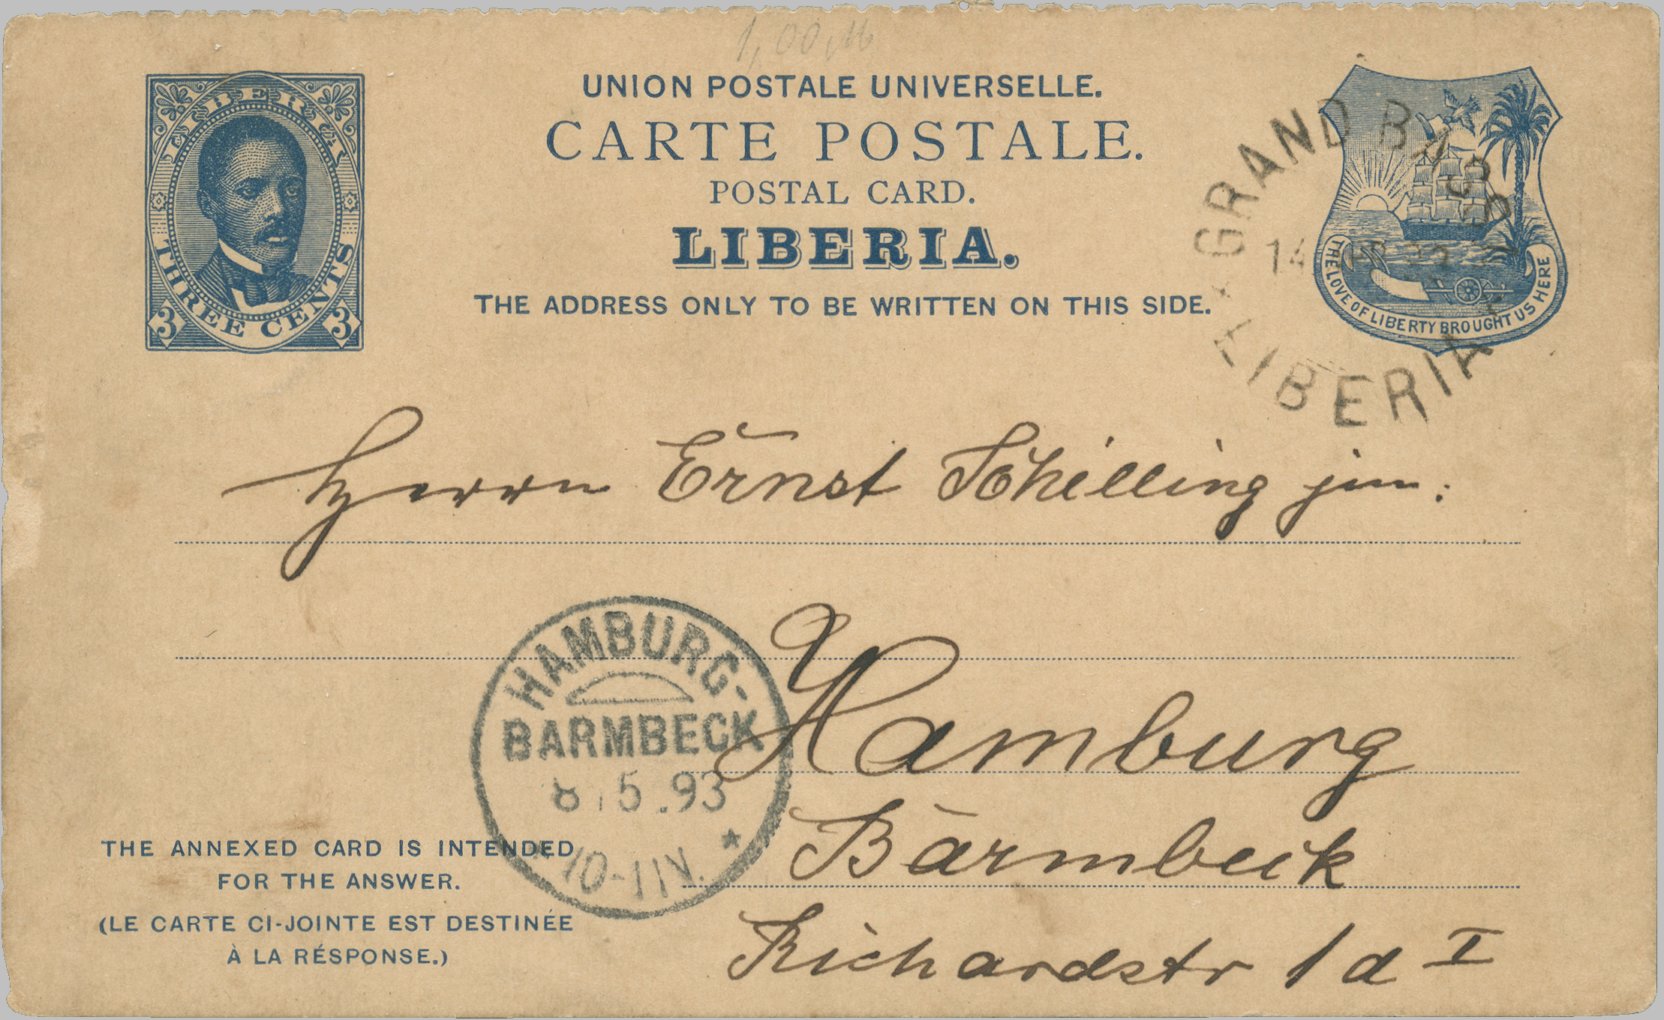 1,00 M
UNION POSTALE UNIVERSELLE.
CARTE POSTALE.
POSTAL CARD.
LIBERIA.
THE ADDRESS ONLY TO BE WRITTEN ON THIS SIDE.
LIBERIA
THREE CENTS
3 3
GRAND BASSA
14
LIBERIA
THE LOVE OF LIBERTY BROUGHT US HERE
Herrn Ernst Schilling jun:
Hamburg
Barmbeck
Richardstr 1 d I
HAMBURG-
BARMBECK
8.5.93
10-11V.
THE ANNEXED CARD IS INTENDED
FOR THE ANSWER.
(LE CARTE CI-JOINTE EST DESTINÉE
À LA RÉSPONSE.)